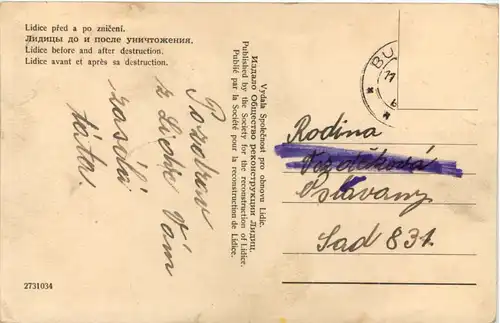 Lidice před a po zničení.
Лидицы до и после уничтожения.
Lidice before and after destruction.
Lidice avant et après sa destruction.
Pozdrav
z Lidic Vám
zasílá
táta.
Vydala Společnost pro obnovu Lidic.
Издало Общество реконструкции Лидиц.
Published by the Society for the reconstruction of Lidice.
Publié par la Société pour la reconstruction de Lidice.
BU
Rodina
Oslavany
Sad 831.
2731034